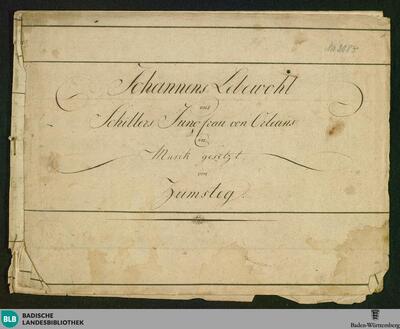 Johannens Lebewohl
aus
Schillers Jungfrau von Orleans
in
Musik gesetzt
von
Zumsteg.
BLB
BADISCHE
LANDESBIBLIOTHEK
Baden-Württemberg